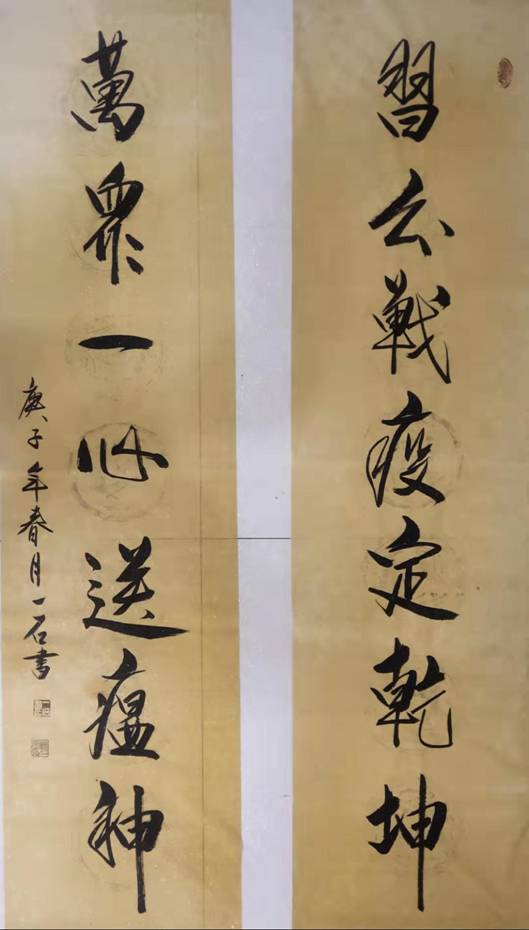 習公戰疫定乾坤
萬眾一心送瘟神
庚子年春月一石書